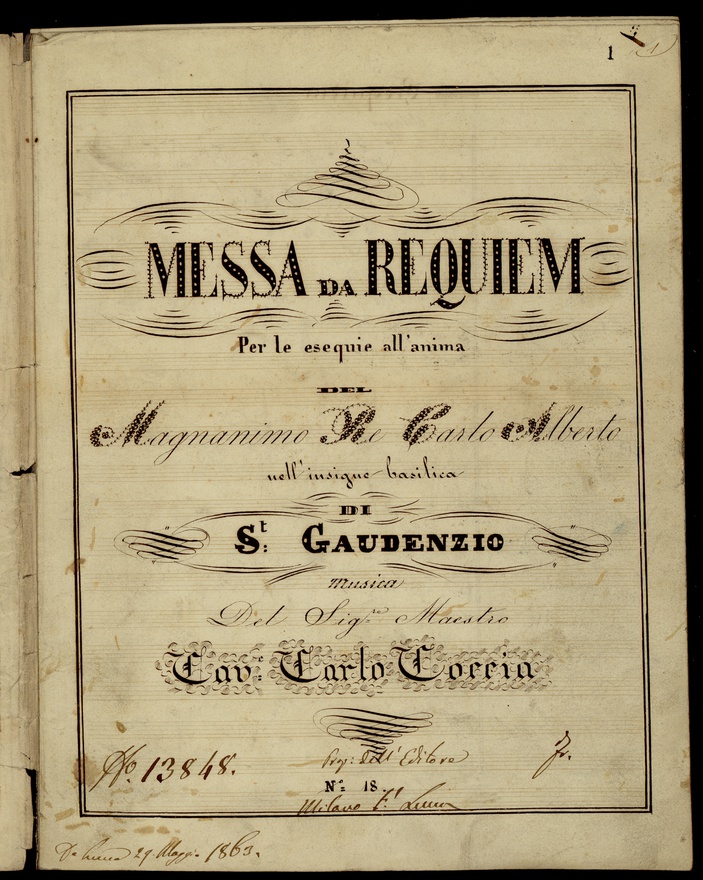 1
MESSA DA REQUIEM
Per le esequie all'anima
DEL
Magnanimo Re Carlo Alberto
nell'insigne basilica
DI
St: GAUDENZIO
musica
Del Sigre Maestro
Cav: Carlo Coccia
No. 13848.
Prop: dell'Editore
Fr.
No: 18
Milano F. Lucca
Da Lucca 29. Maggio 1863.